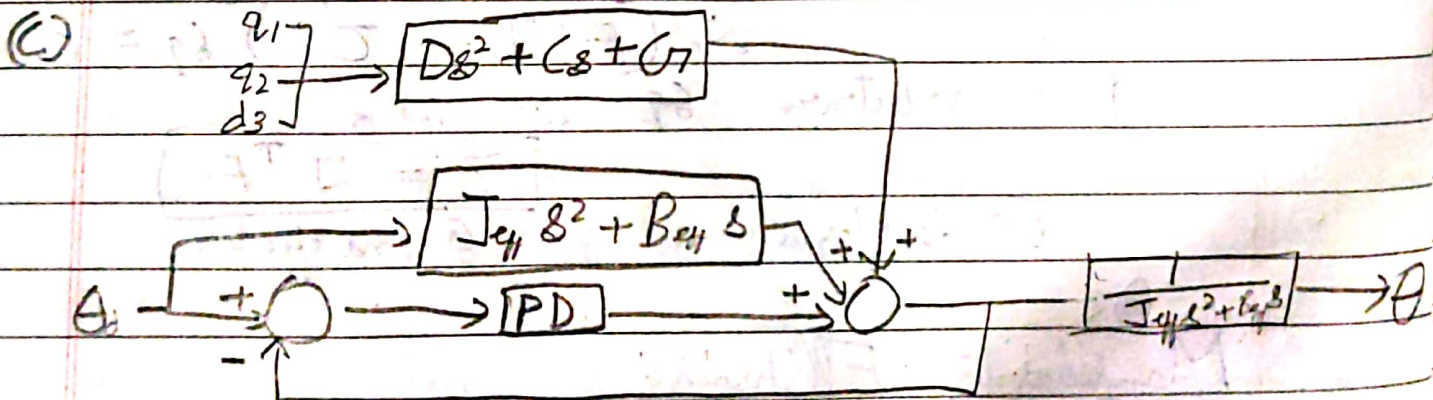 (C)
q1
q2
d3
Ds² + Cs + G
J_eff s² + B_eff s
+ +
θ + PD + 1 / J_eff s² + B_eff s θ
-